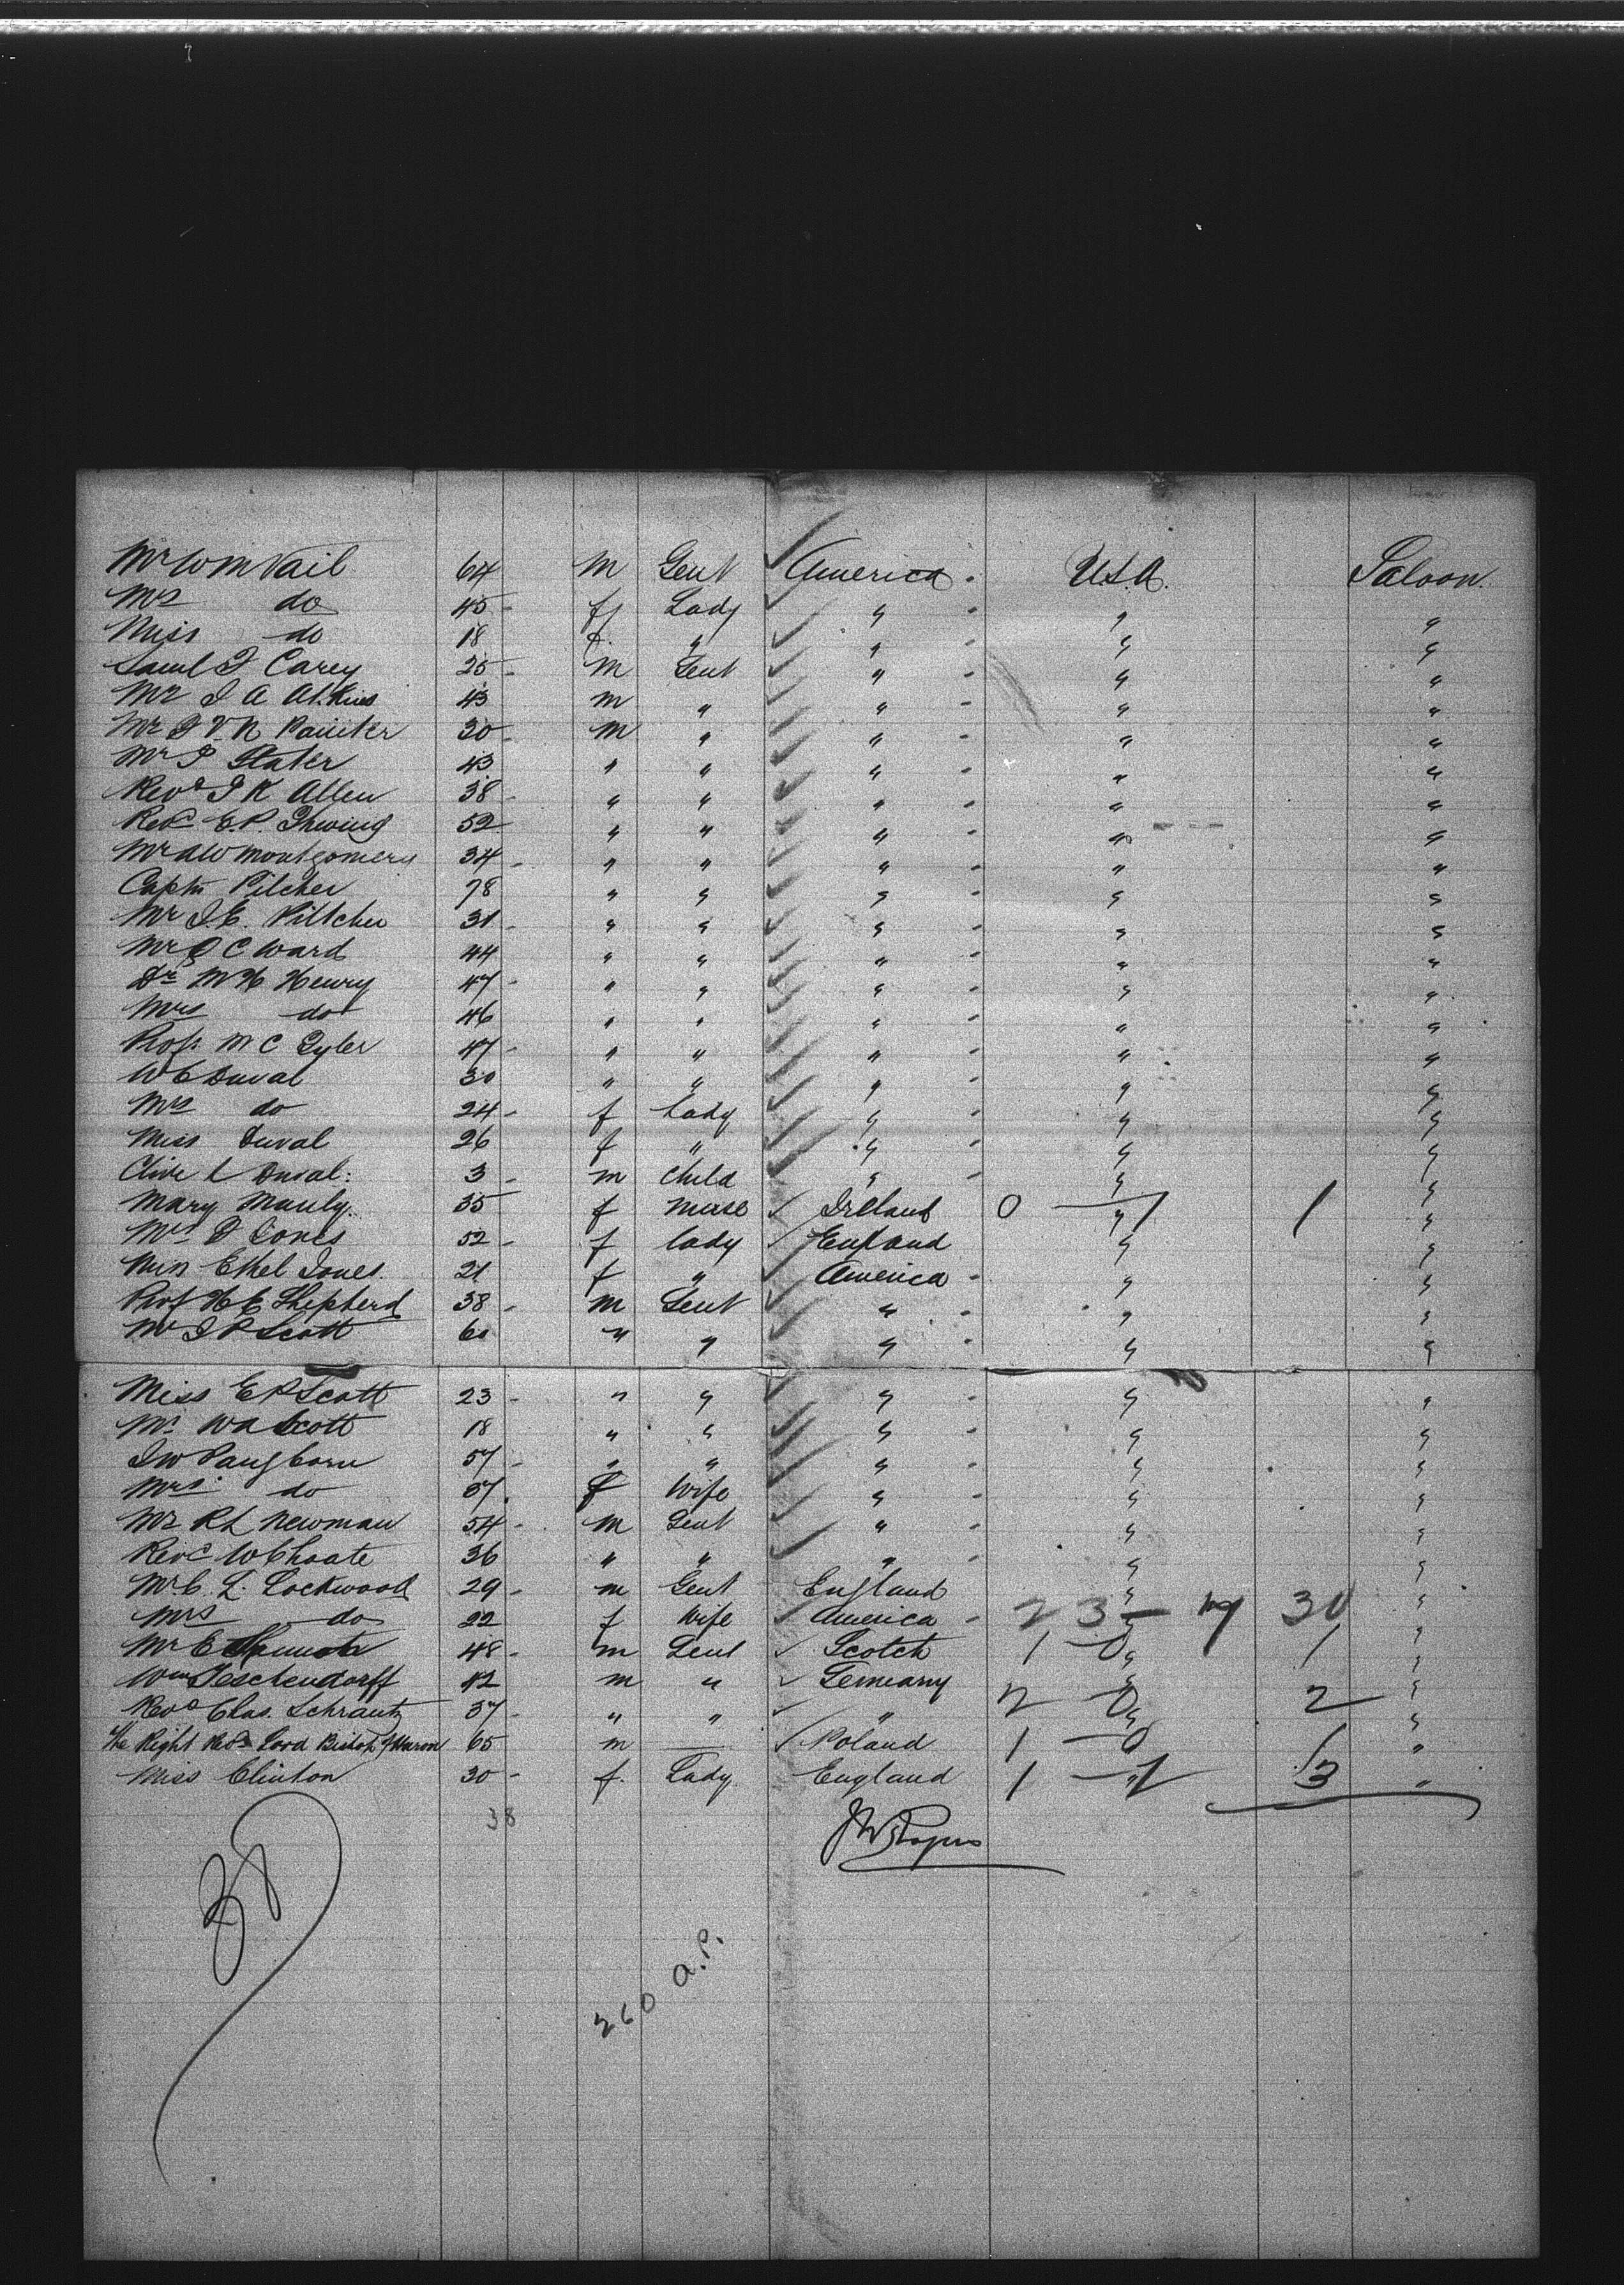 Mr W M Vail 64 M Gent America . U.S.A. Saloon.
Mrs do 45 - f Lady " - " "
Miss do 18 f. " " - " "
Saml T Carey 25 - M Gent " - " "
Mr J A Atkins 43 m " " - " "
Mr F V N Painter 30 - m " " - " "
Mr P Slater 43 " " " - " "
Revd J K Allen 38 - " " " - " "
Revd E. P. Thwing 52 " " " - " "
Mr A W Montgomery 34 - " " " - " "
Captn Pilcher 78 " " " - " "
Mr J. E. Piltcher 31 - " " " - " "
Mr C Ward 44 " " " - " "
Dr M H Henry 47 - " " " - " "
Mrs do 46 " " " - " "
Prof. M C Tyler 47 - " " " - " "
W C Duval 30 " " " - " "
Mrs do 24 - f Lady " - " "
Miss Duval 26 f " " - " "
Clive L Duval. 3 - m Child " - " "
Mary Manly. 35 f nurse Ireland 0 — 1 " 1 "
Mrs D Jones 52 - f lady England " "
Miss Ethel Jones. 21 f " America - " "
Prof H E Shepherd 38 - m Gent " - " "
Mr J P Scott 60 " " " - " "
Miss E P Scott 23 - " " " - " "
Mr W A Scott 18 " " " - " "
J W Pangborn 57 - " " " - " "
Mrs do 57. f Wife " - " "
Mr R L Newman 54 - m Gent " - " "
Revd W Choate 36 " " " - " "
Mr C. L. Lockwood 29 - m Gent England " "
Mrs do 22 f Wife America - 23 — 7 30 "
Mr E 48 - m Gent Scotch 1 — 0 " 1 "
Wm Teschendorff 42 m " Germany 2 — 0 " 2 "
Revd Chas. Schrantz 37 - " " " " "
The Right Revd Lord Bishop of Huron 65 m — Poland 1 — 0 1 "
Miss Clinton 30 - f. Lady England 1 — 1 " 3 "
38
38
260 a.P.